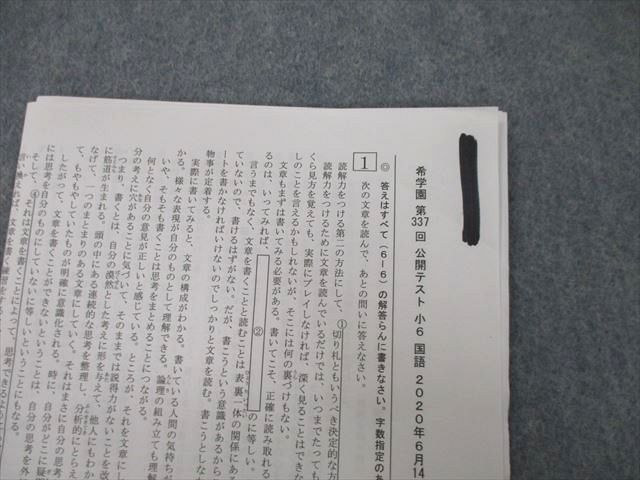 希学園 第337回 公開テスト 小6 国語 2020年6月14
◎ 答えはすべて(6-6)の解答らんに書きなさい。字数指定のあ
1 次の文章を読んで、あとの問いに答えなさい。
読解力をつける第二の方法にして、①切り札ともいうべき決定的な方
読解力をつけるために文章を読んでいるだけでは、いつまでたっても
くら見方を覚えても、実際にプレイしなければ、深く見ることはできな
しのことを言えるかもしれないが、そこには何の裏づけもない。
文章もまずは書いてみる必要がある。書いてこそ、正確に読み取れる
るのは、いってみれば、②のに等しい。
言うまでもなく、文章を書くことと読むことは表裏一体の関係にある
ていないので、書けるはずがない。だが、書こうという意識があるから
ートを書かなければいけないのでしっかりと文章を読む。書こうとしな
物事が定着する。
実際に書いてみると、文章の構成がわかる。書いている人間の気持ちが
かる。様々な表現が自分のものとして理解できる。論理の組み立ても理解
いや、そもそも書くことは思考をまとめることにつながる。
何となく自分の意見が正しいと感じている。ところが、それを文章にし
分の考えに穴があることに気づいて、そのままでは説得力がないことを改
つまり、書くとは、自分の漠然とした考えに形を与えて、他人にもわか
に筋道が生まれる。頭の中にある連続的な思考を整理し、分析的にとらえ
なげて、一つのまとまりのある文章にしていく。それはまさに自分の思考
て、もやもやしていたものが明確に意識化される。時に、自分がどこに疑
したがって、文章を書くことができないということは、自分の思考を外
には思考を自分のものにしていないに等しいということにもなる。
そして、④それは文章を書くことによって、思考できるように
言い換えれば、文章を書く練習をする